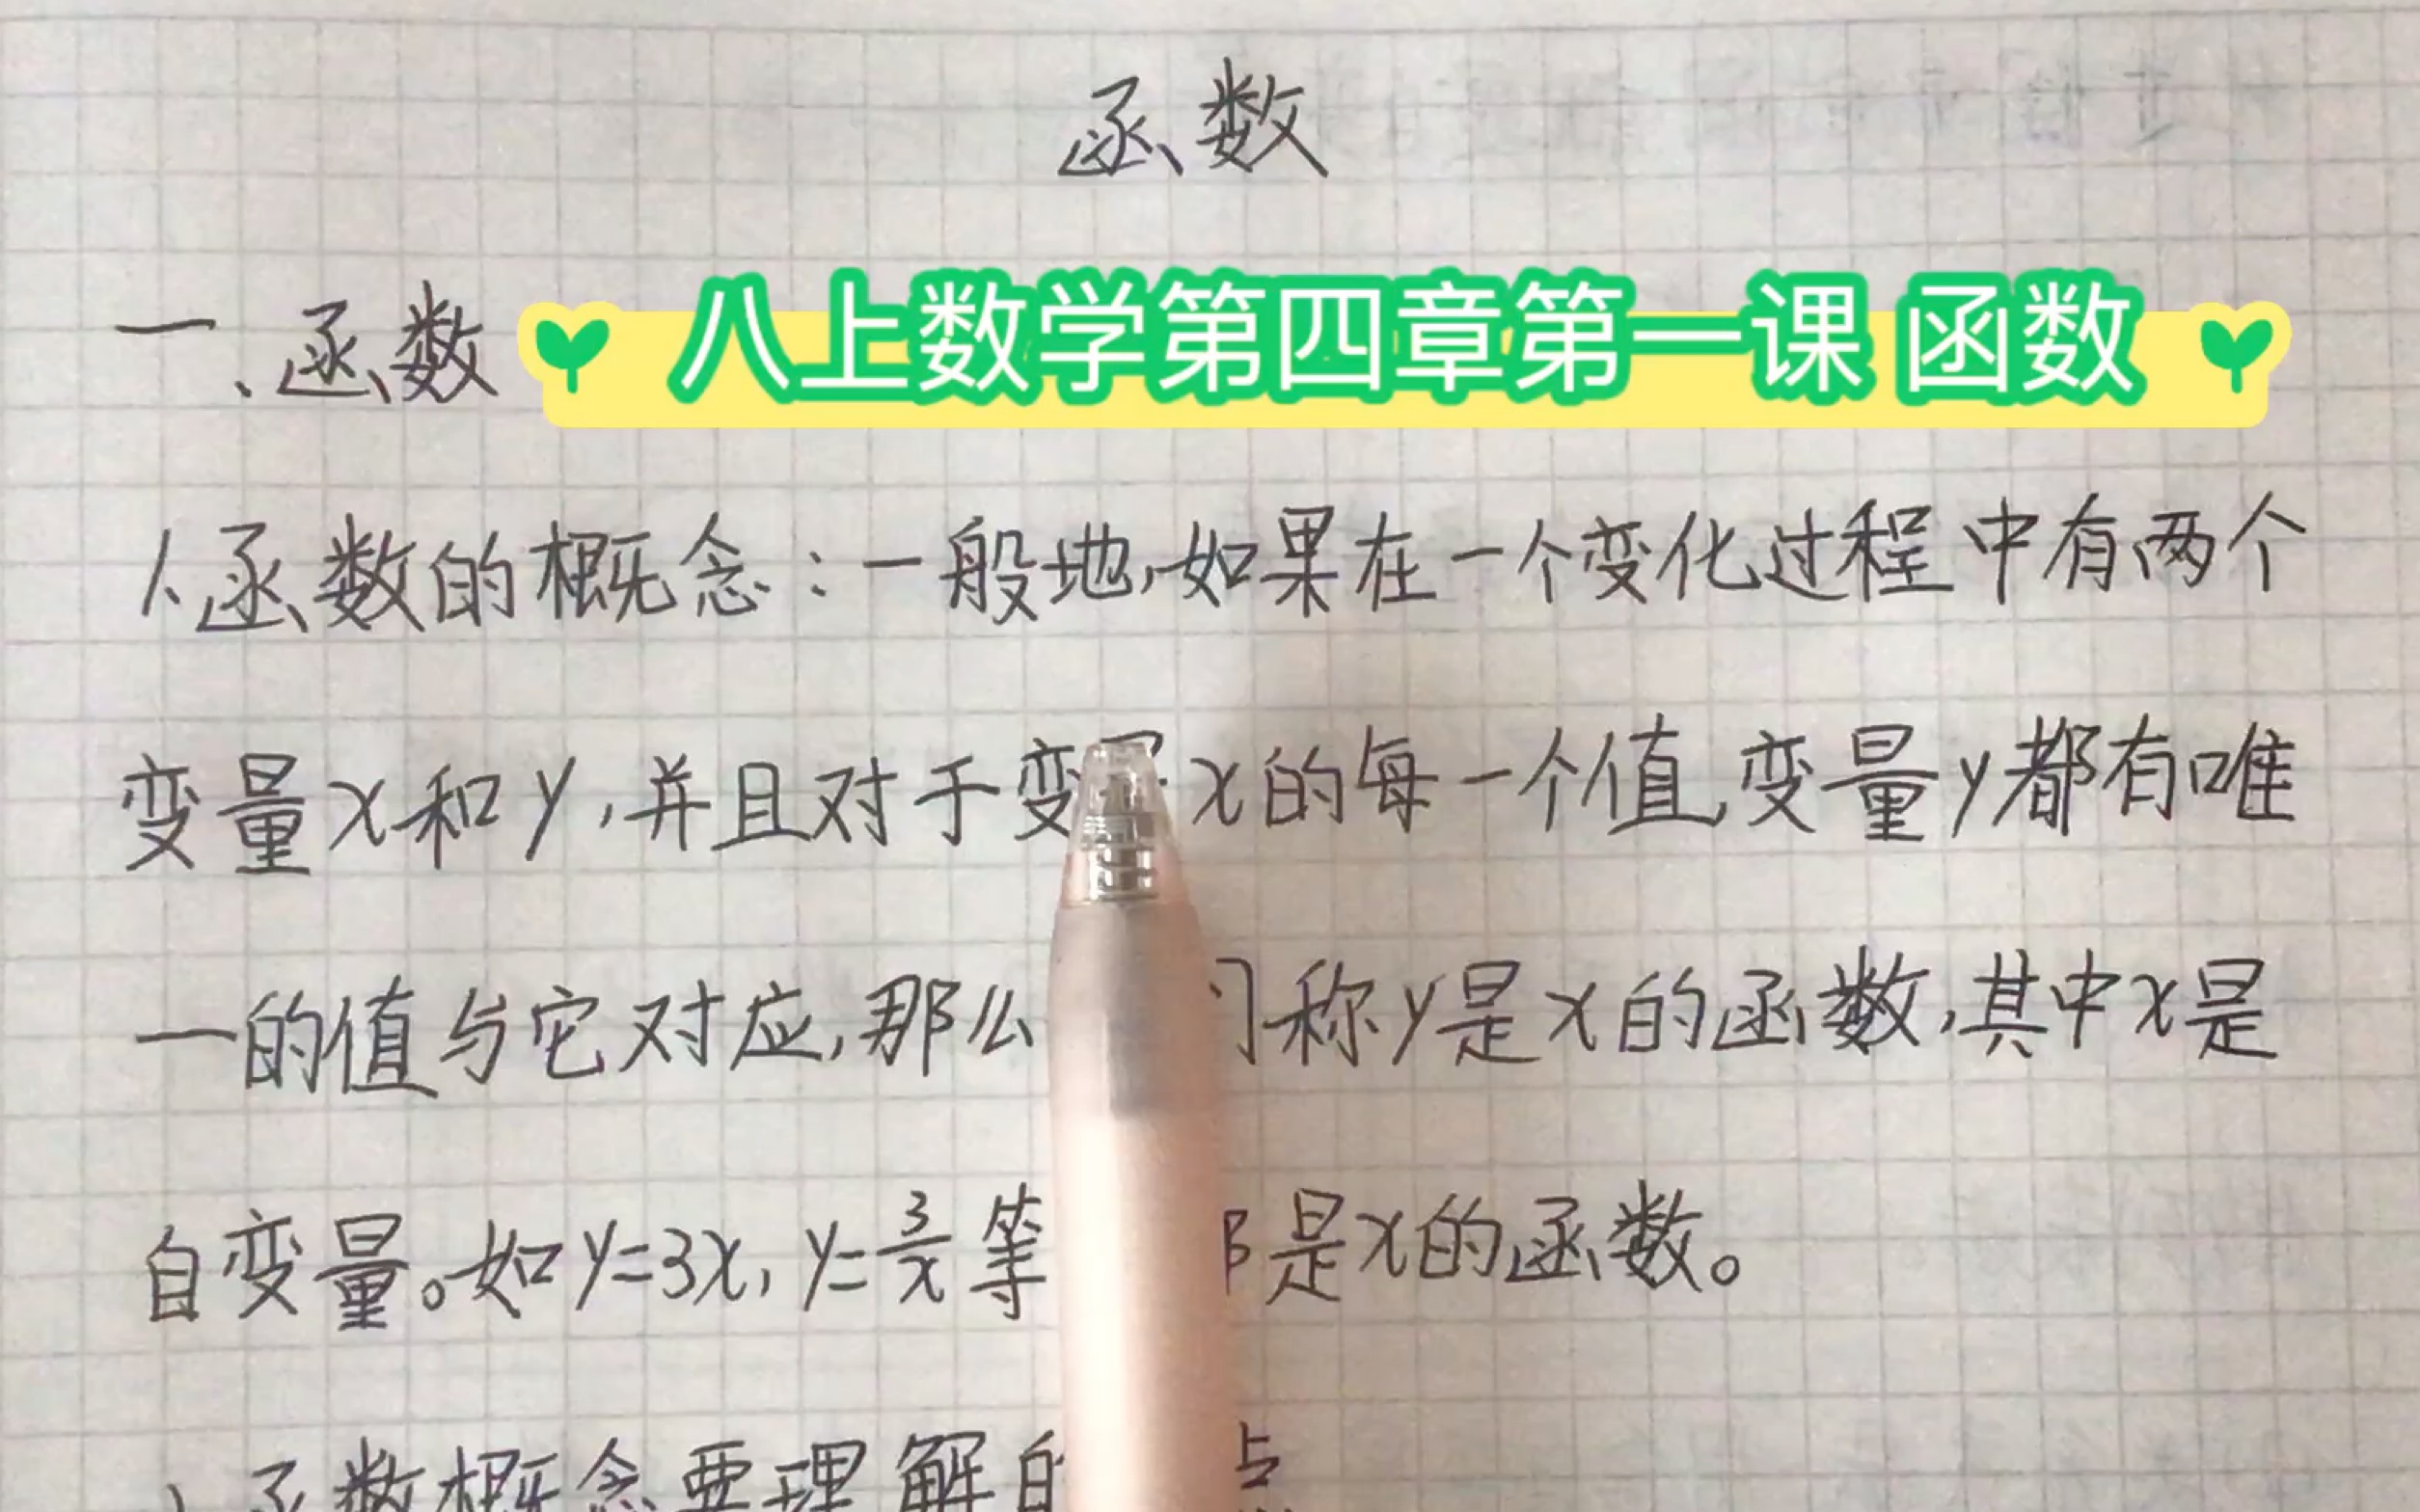 函数
一、函数
八上数学第四章第一课 函数
1.函数的概念:一般地,如果在一个变化过程中有两个
变量x和y,并且对于变量x的每一个值,变量y都有唯
一的值与它对应,那么 称y是x的函数,其中x是
自变量。如y=3x, y=3/x等 是x的函数。
函数概念要理解